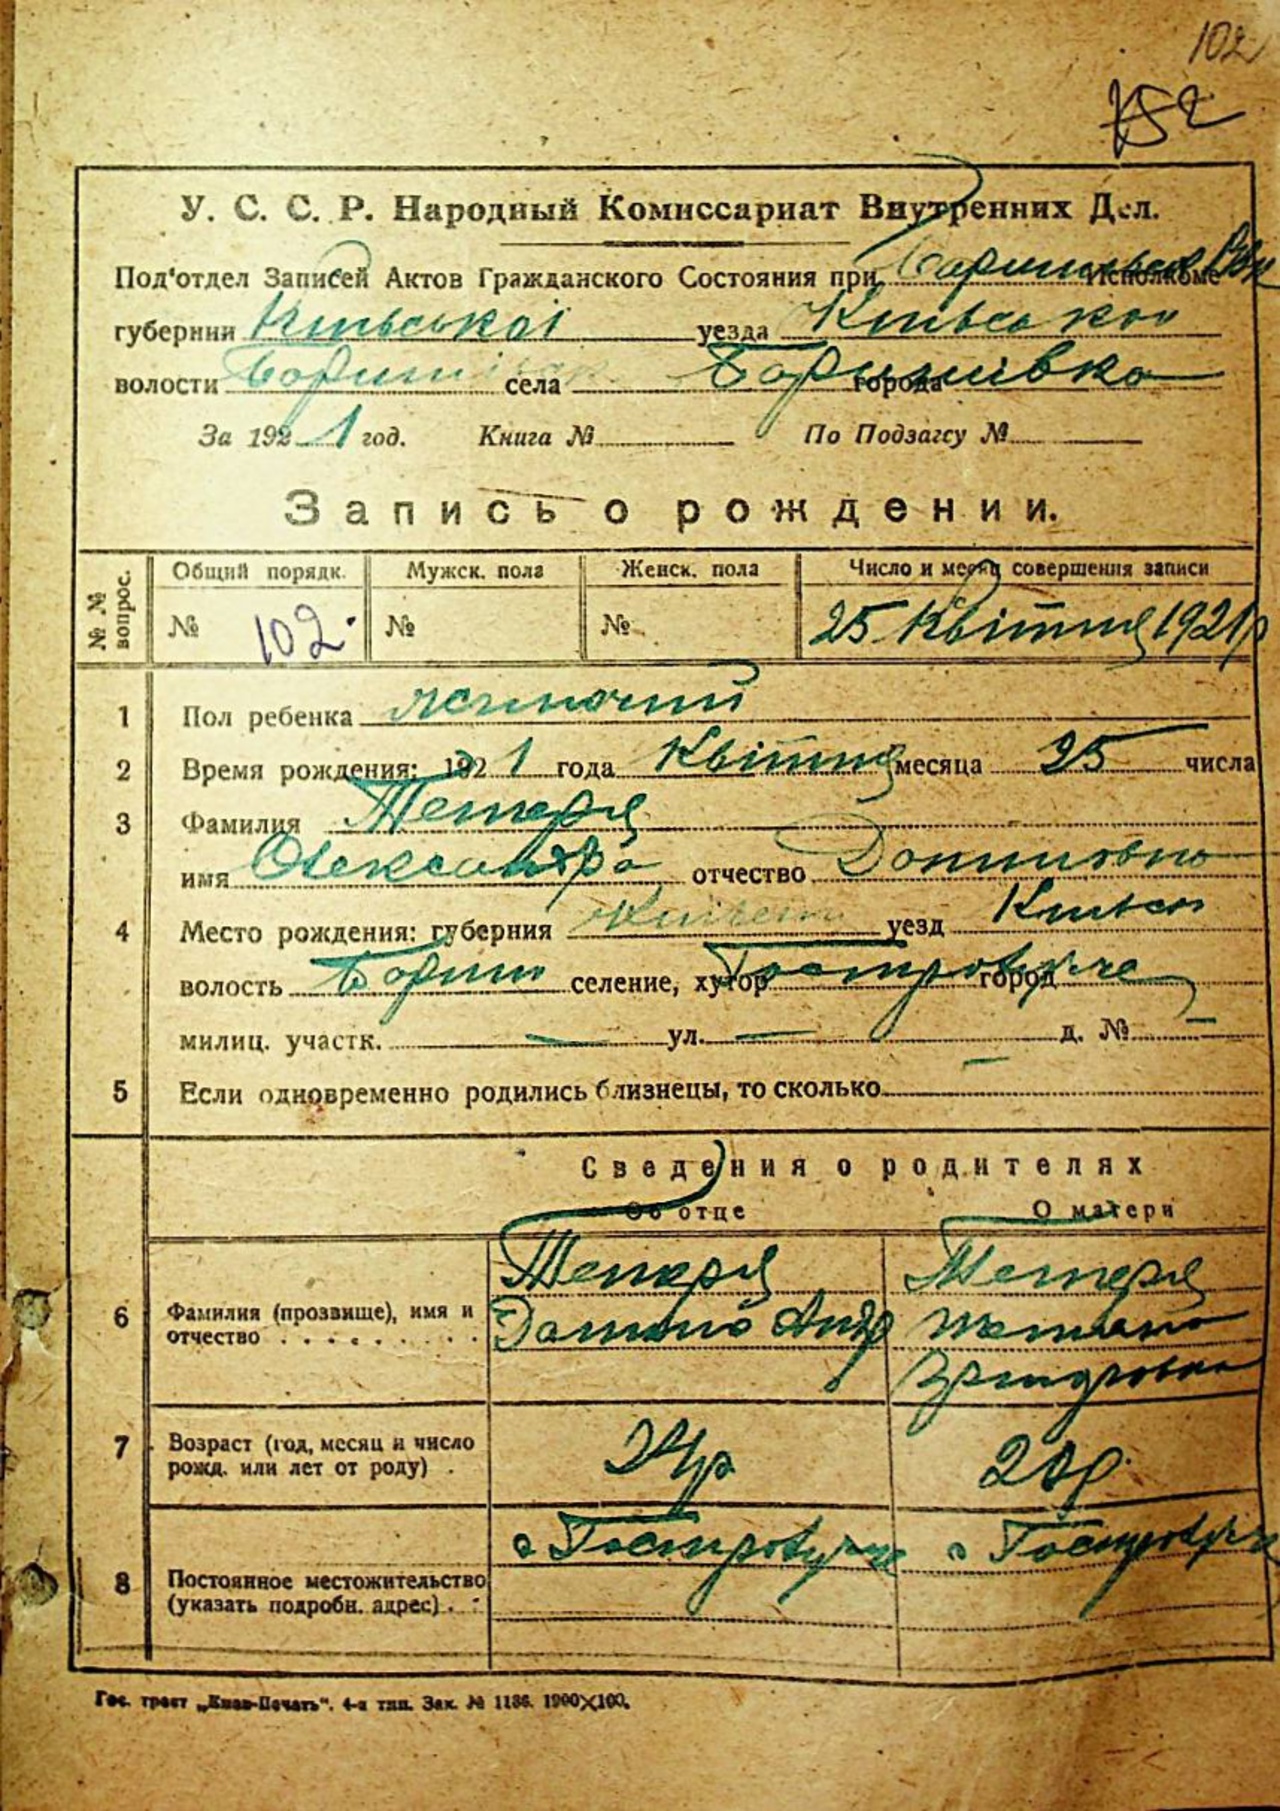 102
152
У. С. С. Р. Народный Комиссариат Внутренних Дел.
Под‘отдел Записей Актов Гражданского Состояния при Исполкоме
губернии Київської уезда Київського
волости села города Боршівка
За 1921 год. Книга № По Подзагсу №
Запись о рождении.
№ № вопрос. Общий порядк. Мужск. пола Женск. пола Число и месяц совершения записи
№ 102. № № 25 Квітня 1921р
1 Пол ребенка жіночий
2 Время рождения: 1921 года Квітня месяца 25 числа
3 Фамилия Тетеря
имя Олександра отчество Даниловна
4 Место рождения: губерния Київськ уезд Київськ
волость селение, хутор город
милиц. участк. — ул. — д. № —
5 Если одновременно родились близнецы, то сколько —
Сведения о родителях
Об отце О матери
6 Фамилия (прозвище), имя и отчество Тетеря Данило Андр Тетеря
7 Возраст (год, месяц и число рожд. или лет от роду) . 24р 20р.
8 Постоянное местожительство (указать подробн. адрес) . .
Гос. трест „Киев-Печать“. 4-я тип. Зак. № 1186. 1900×100.